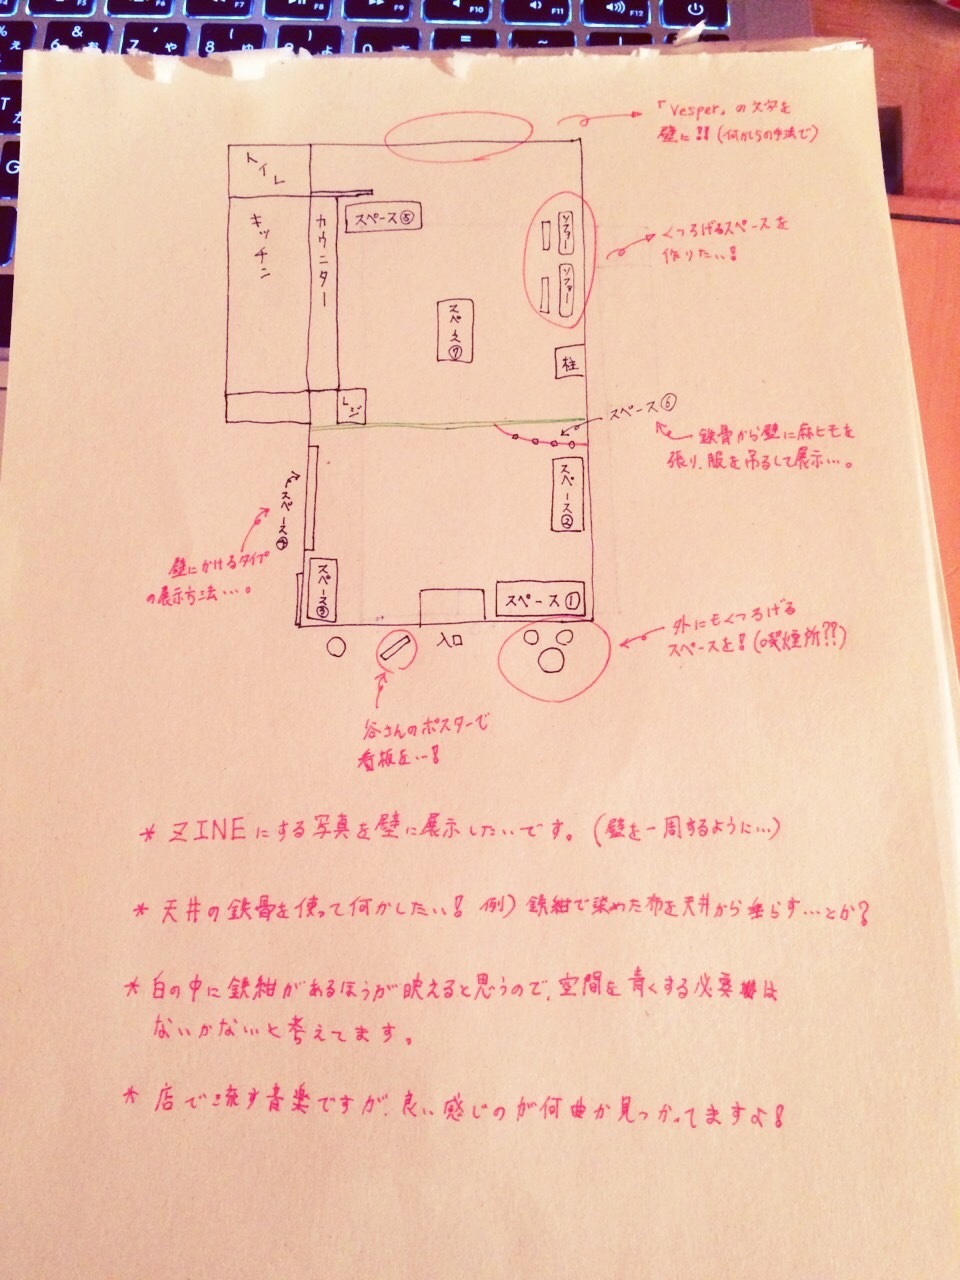 「Vesper」の文字を
壁に!! (何かしらの手法で)
トイレ
キッチン
カウンター
スペース⑤
ソファー
ソファー
くつろげるスペースを
作りたい!
スペース⑦
柱
レジ
スペース⑥
鉄骨から壁に麻ヒモを
張り、服を吊るして展示…。
スペース④
スペース②
壁にかけるタイプ
の展示方法…。
スペース③
スペース①
入口
外にもくつろげる
スペースを! (喫煙所??)
谷さんのポスターで
看板を…!
* ZINEにする写真を壁に展示したいです。(壁を一周するように…)
* 天井の鉄骨を使って何かしたい! 例) 鉄紺で染めた布を天井から垂らす…とか?
* 白の中に鉄紺があるほうが映えると思うので、空間を青くする必要は
ないかないと考えてます。
* 店で流す音楽ですが、良い感じのが何曲か見つかってますよ!